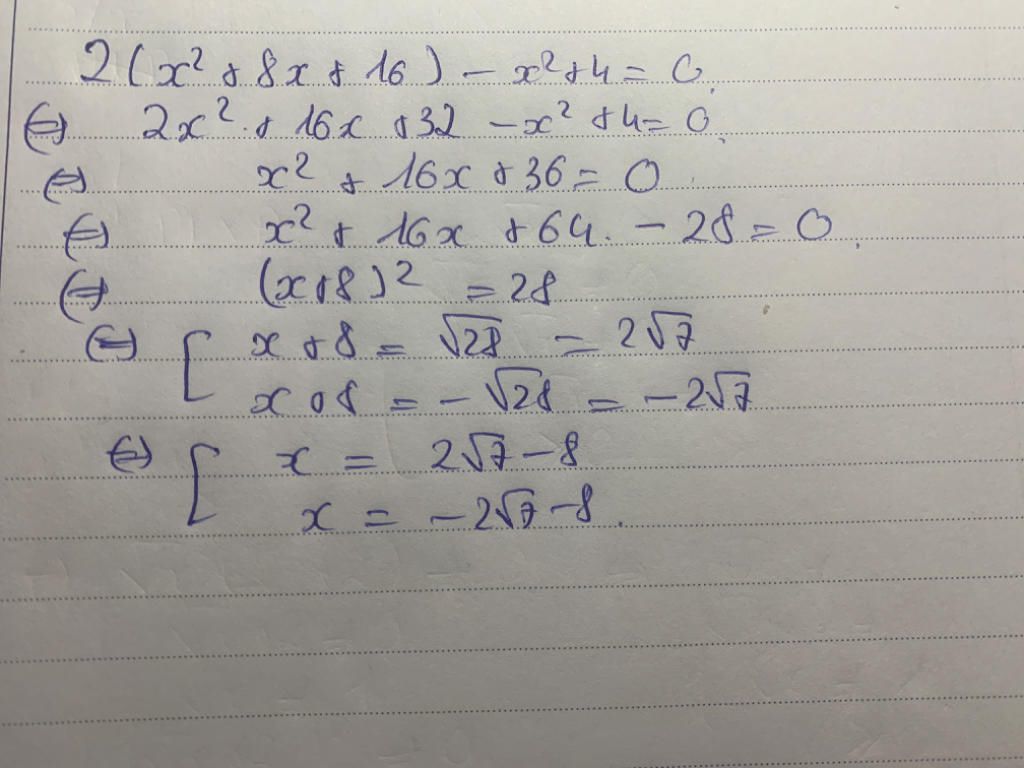 2(x² + 8x + 16) - x² + 4 = 0.
⇔ 2x² + 16x + 32 - x² + 4 = 0.
⇔ x² + 16x + 36 = 0
⇔ x² + 16x + 64 - 28 = 0.
⇔ (x+8)² = 28
⇔ [ x + 8 = √28 = 2√7
x + 8 = -√28 = -2√7
⇔ [ x = 2√7 - 8
x = -2√7 - 8.